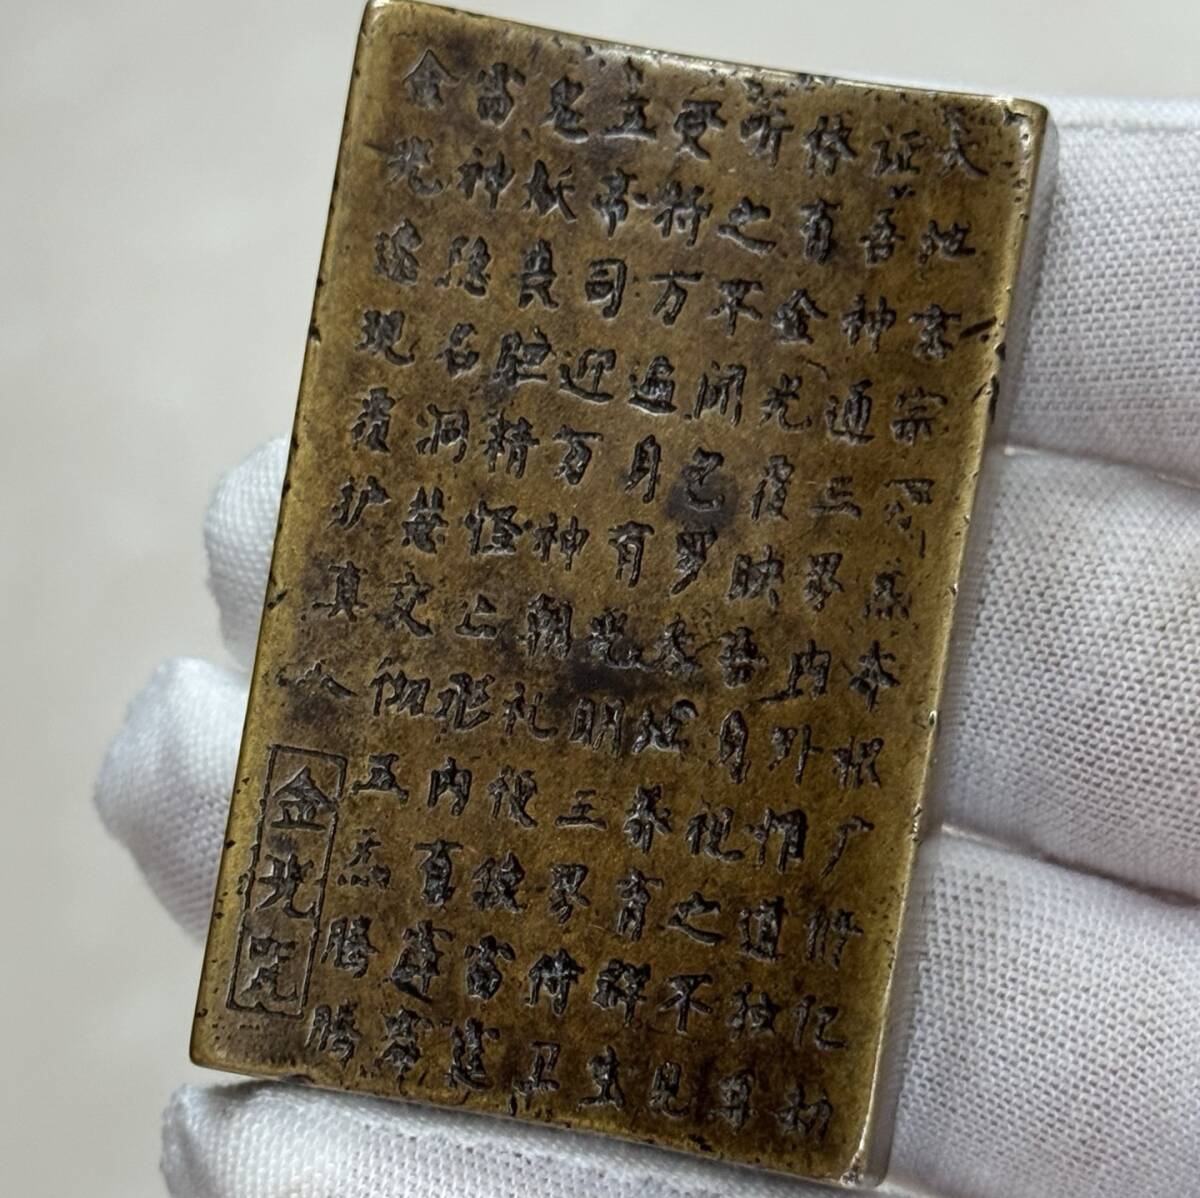 天地玄宗万炁本根广修亿劫
证吾神通三界内外惟道独尊
体有金光覆映吾身视之不见
听之不闻包罗天地养育群生
受持万遍身有光明三界侍卫
五帝司迎万神朝礼使役雷霆
鬼妖丧胆精怪亡形内有霹雳
雷神隐名洞慧交彻五炁腾腾
金光速现覆护真人
金光咒